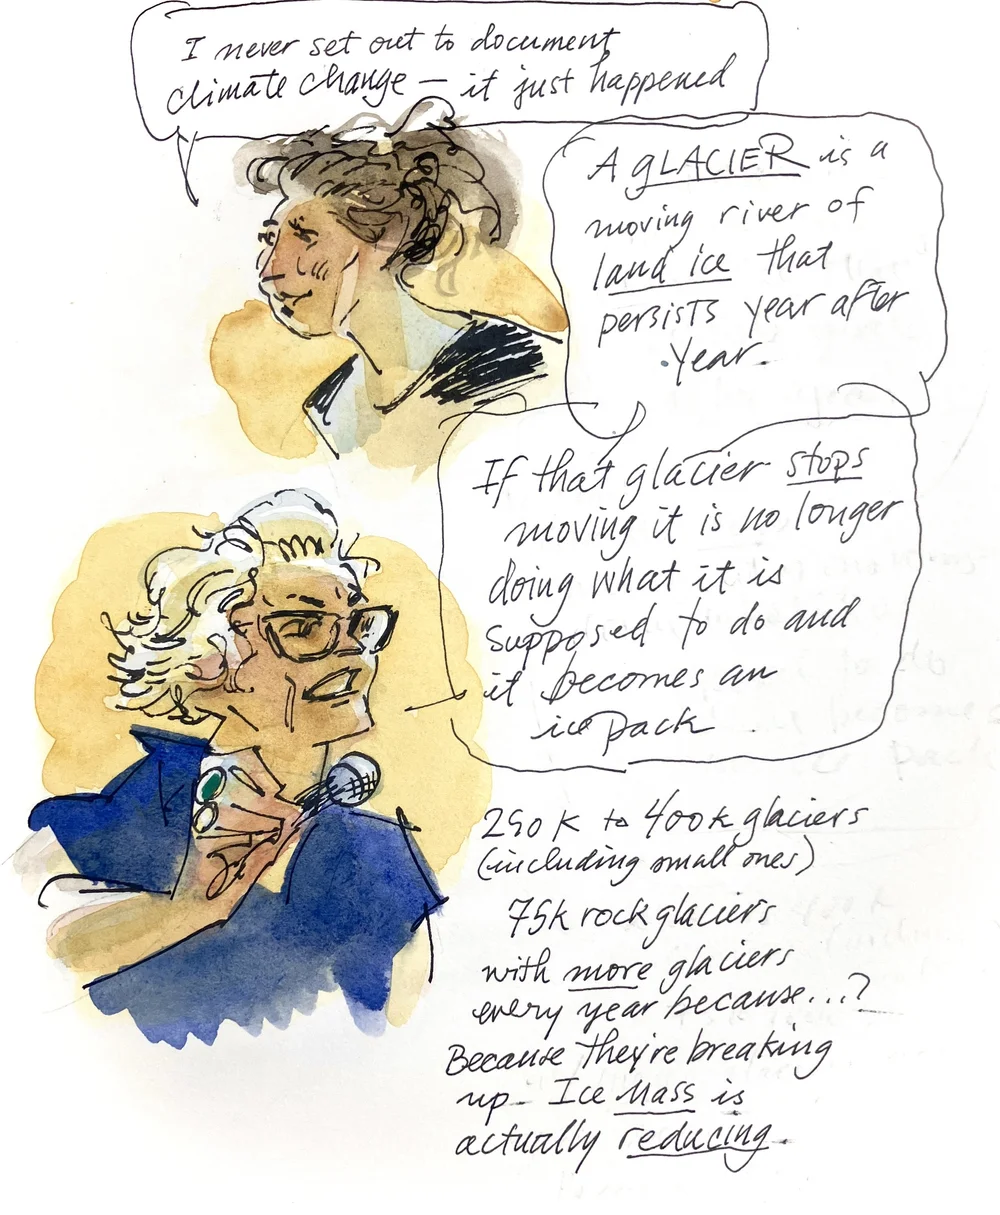 I never set out to document
climate change — it just happened
A GLACIER is a
moving river of
land ice that
persists year after
year.
If that glacier stops
moving it is no longer
doing what it is
supposed to do and
it becomes an
ice pack.
290K to 400K glaciers
(including small ones)
75K rock glaciers
with more glaciers
every year because...?
Because they're breaking
up. Ice Mass is
actually reducing.